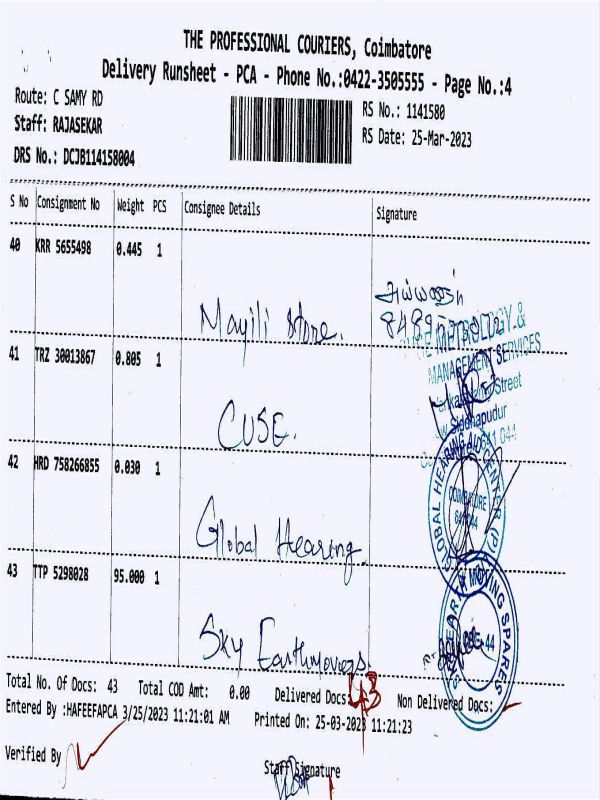 THE PROFESSIONAL COURIERS, Coimbatore
Delivery Runsheet - PCA - Phone No.:0422-3505555 - Page No.:4
Route: C SAMY RD
Staff: RAJASEKAR
DRS No.: DCJB114158004
RS No.: 1141580
RS Date: 25-Mar-2023
S No Consignment No Weight PCS Consignee Details Signature
40 KRR 5655498 0.445 1
Mayili Store.
41 TRZ 30013867 0.805 1
MANAGEMENT SERVICES
Street
Siddhapudur
CUSE.
42 HRD 758266855 0.030 1
GLOBAL HEARING
COIMBATORE
Global Hearing.
43 TTP 5298028 95.000 1
MOVING SPARES
Sky Earthmovers.
Total No. Of Docs: 43 Total COD Amt: 0.00 Delivered Docs: 43 Non Delivered Docs: -
Entered By :HAFEEFAPCA 3/25/2023 11:21:01 AM Printed On: 25-03-2023 11:21:23
Verified By
Staff Signature